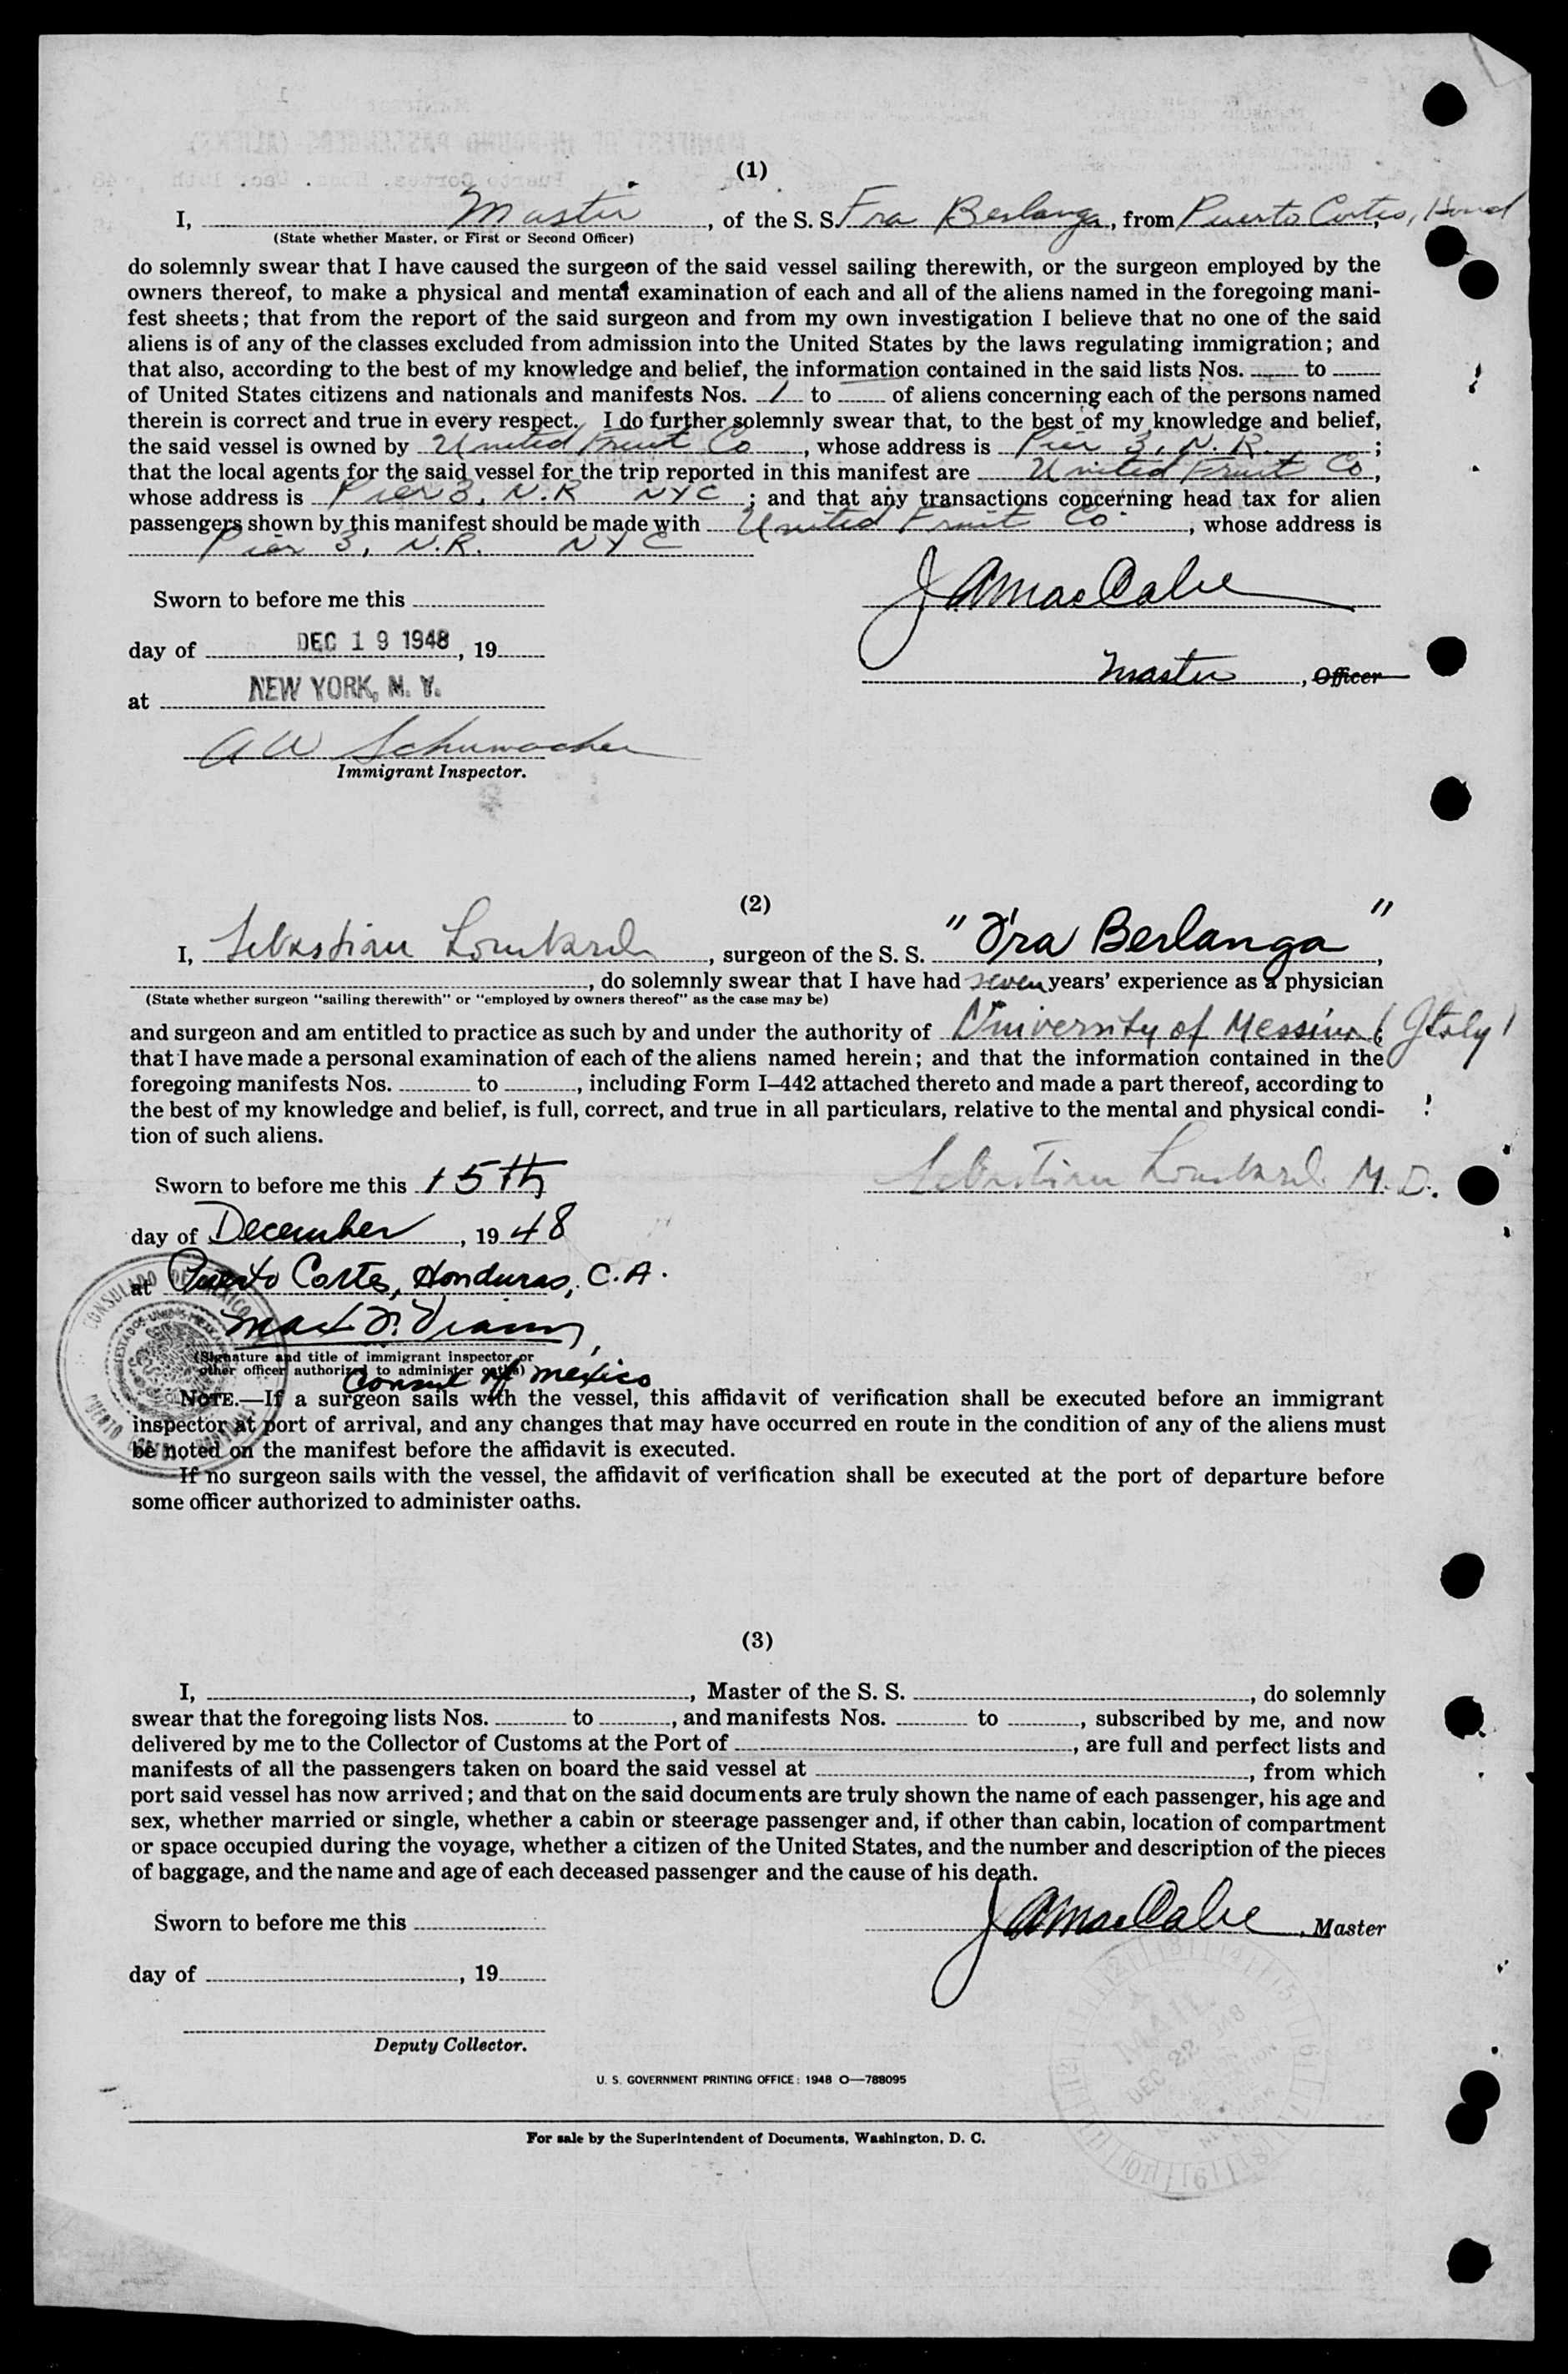 (1)
I, Master, of the S. S. Fra Berlanga, from Puerto Cortes, Hond,
(State whether Master, or First or Second Officer)
do solemnly swear that I have caused the surgeon of the said vessel sailing therewith, or the surgeon employed by the
owners thereof, to make a physical and mental examination of each and all of the aliens named in the foregoing mani-
fest sheets; that from the report of the said surgeon and from my own investigation I believe that no one of the said
aliens is of any of the classes excluded from admission into the United States by the laws regulating immigration; and
that also, according to the best of my knowledge and belief, the information contained in the said lists Nos. ........ to ........
of United States citizens and nationals and manifests Nos. 1 to ........ of aliens concerning each of the persons named
therein is correct and true in every respect. I do further solemnly swear that, to the best of my knowledge and belief,
the said vessel is owned by United Fruit Co, whose address is Pier 3, N. R.;
that the local agents for the said vessel for the trip reported in this manifest are United Fruit Co,
whose address is Pier 3, N.R NYC; and that any transactions concerning head tax for alien
passengers shown by this manifest should be made with United Fruit Co, whose address is
Pier 3, N.R. NYC
J A MacCabe
Sworn to before me this
day of DEC 19 1948, 19
Master, Officer
at NEW YORK, N. Y.
A W Schumacher
Immigrant Inspector.
(2)
I, Sebastian Lombardi, surgeon of the S. S. "Fra Berlanga",
, do solemnly swear that I have had seven years' experience as a physician
(State whether surgeon "sailing therewith" or "employed by owners thereof" as the case may be)
and surgeon and am entitled to practice as such by and under the authority of University of Messina (Italy);
that I have made a personal examination of each of the aliens named herein; and that the information contained in the
foregoing manifests Nos. ........ to ........, including Form I–442 attached thereto and made a part thereof, according to
the best of my knowledge and belief, is full, correct, and true in all particulars, relative to the mental and physical condi-
tion of such aliens.
Sworn to before me this 15th
Sebastian Lombardi M. D.
day of December, 1948
at Puerto Cortes, Honduras, C. A.
(Signature and title of immigrant inspector or
other officer authorized to administer oaths)
Consul of Mexico
CONSULADO DE MEXICO
ESTADOS UNIDOS MEXICANOS
PUERTO
NOTE.—If a surgeon sails with the vessel, this affidavit of verification shall be executed before an immigrant
inspector at port of arrival, and any changes that may have occurred en route in the condition of any of the aliens must
be noted on the manifest before the affidavit is executed.
If no surgeon sails with the vessel, the affidavit of verification shall be executed at the port of departure before
some officer authorized to administer oaths.
(3)
I, ........, Master of the S. S. ........, do solemnly
swear that the foregoing lists Nos. ........ to ........, and manifests Nos. ........ to ........, subscribed by me, and now
delivered by me to the Collector of Customs at the Port of ........, are full and perfect lists and
manifests of all the passengers taken on board the said vessel at ........, from which
port said vessel has now arrived; and that on the said documents are truly shown the name of each passenger, his age and
sex, whether married or single, whether a cabin or steerage passenger and, if other than cabin, location of compartment
or space occupied during the voyage, whether a citizen of the United States, and the number and description of the pieces
of baggage, and the name and age of each deceased passenger and the cause of his death.
Sworn to before me this
J A MacCabe, Master
day of ........, 19
Deputy Collector.
DEC 22
U. S. GOVERNMENT PRINTING OFFICE: 1948 O—788095
For sale by the Superintendent of Documents, Washington, D. C.